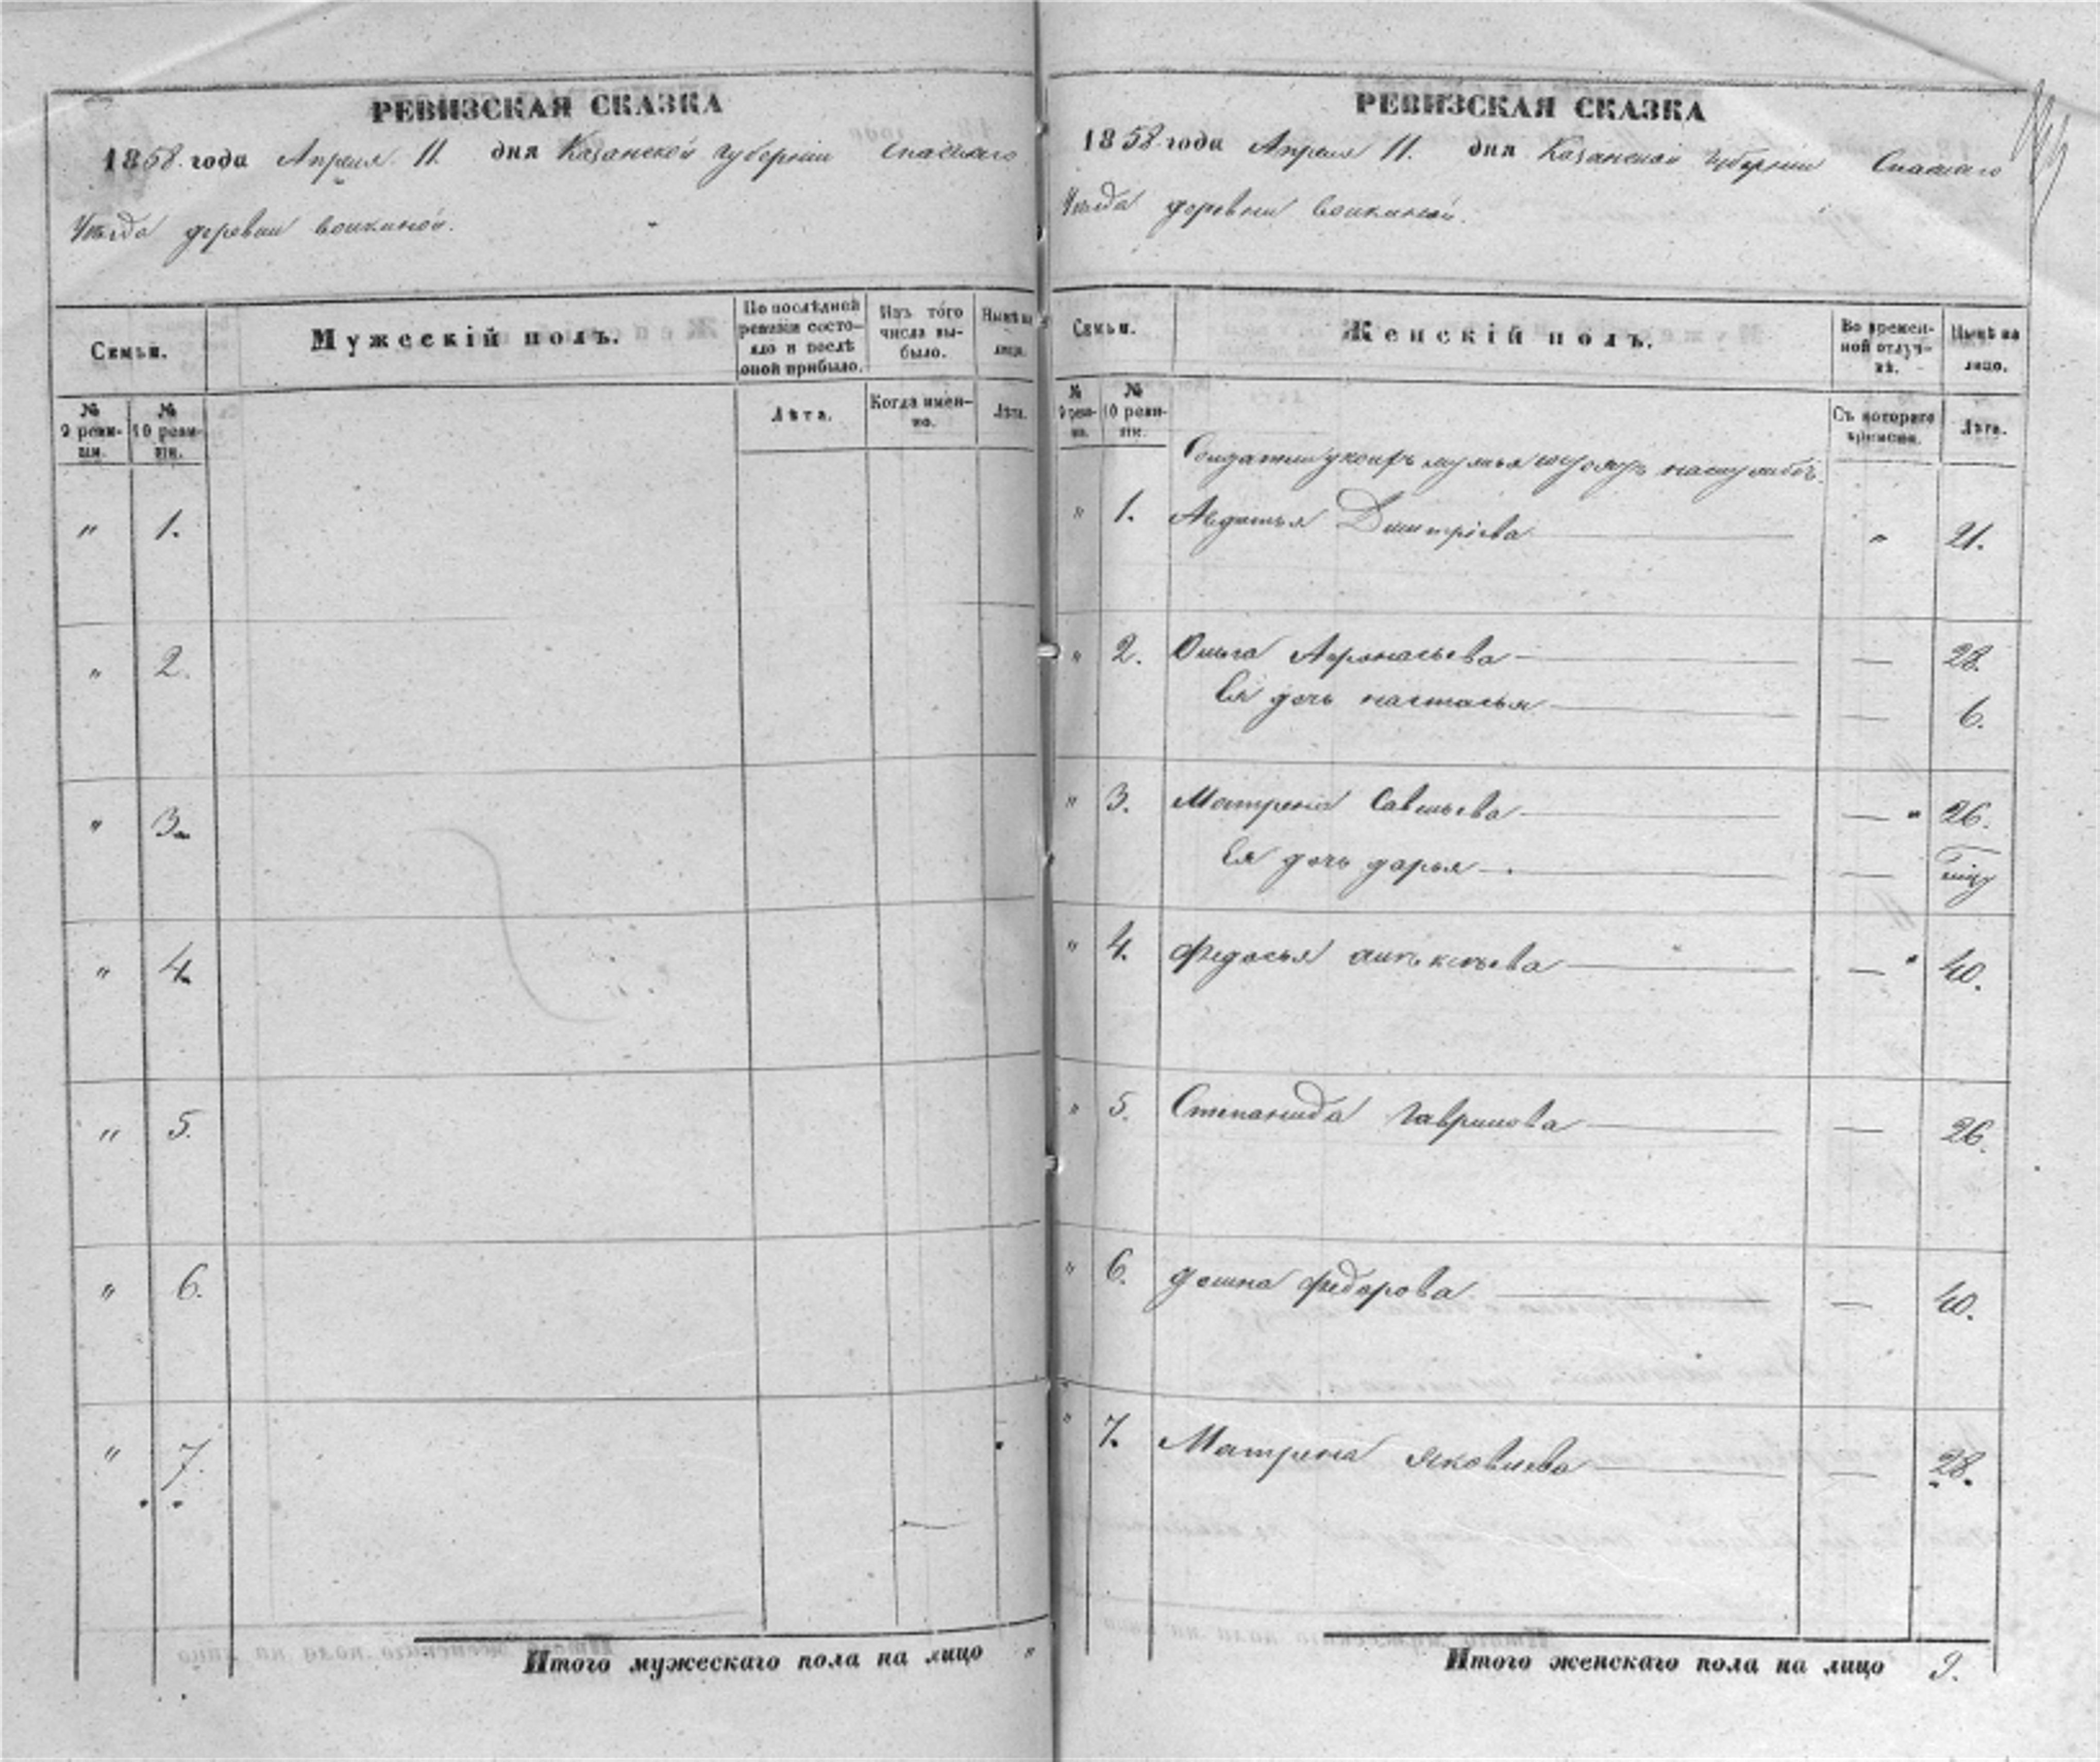 РЕВИЗСКАЯ СКАЗКА
1858 года Апреля 11. дня Казанской губернии Спаскаго
Уѣзда деревни
Семьи.
Мужескій полъ.
По послѣдней ревизіи состояло и послѣ оной прибыло.
Изъ того числа выбыло.
Нынѣ на лицо.
№ 9 ревизіи.
№ 10 ревизіи.
Лѣта.
Когда именно.
Лѣта.
" 1.
" 2.
" 3.
" 4.
" 5.
" 6.
" 7.
Итого мужескаго пола на лицо "
РЕВИЗСКАЯ СКАЗКА
1858 года Апреля 11. дня Казанской губернии Спаскаго
Уѣзда деревни
Семьи.
Женскій полъ.
Во временной отлучкѣ.
Нынѣ на лицо.
№ 9 ревизіи.
№ 10 ревизіи.
Съ котораго времени.
Лѣта.
Солдатки
" 1. Авдотья Димитріева " 21.
" 2. Ольга Афонасьева — 28.
Ея дочь настасья — 6.
" 3. Матрена Савельева — 26.
Ея дочь дарья —
" 4. Федосья — 40.
" 5. Степанида Гаврилова — 26.
" 6. домна федорова — 40.
" 7. Матрена Яковлева — 28.
Итого женскаго пола на лицо 9.